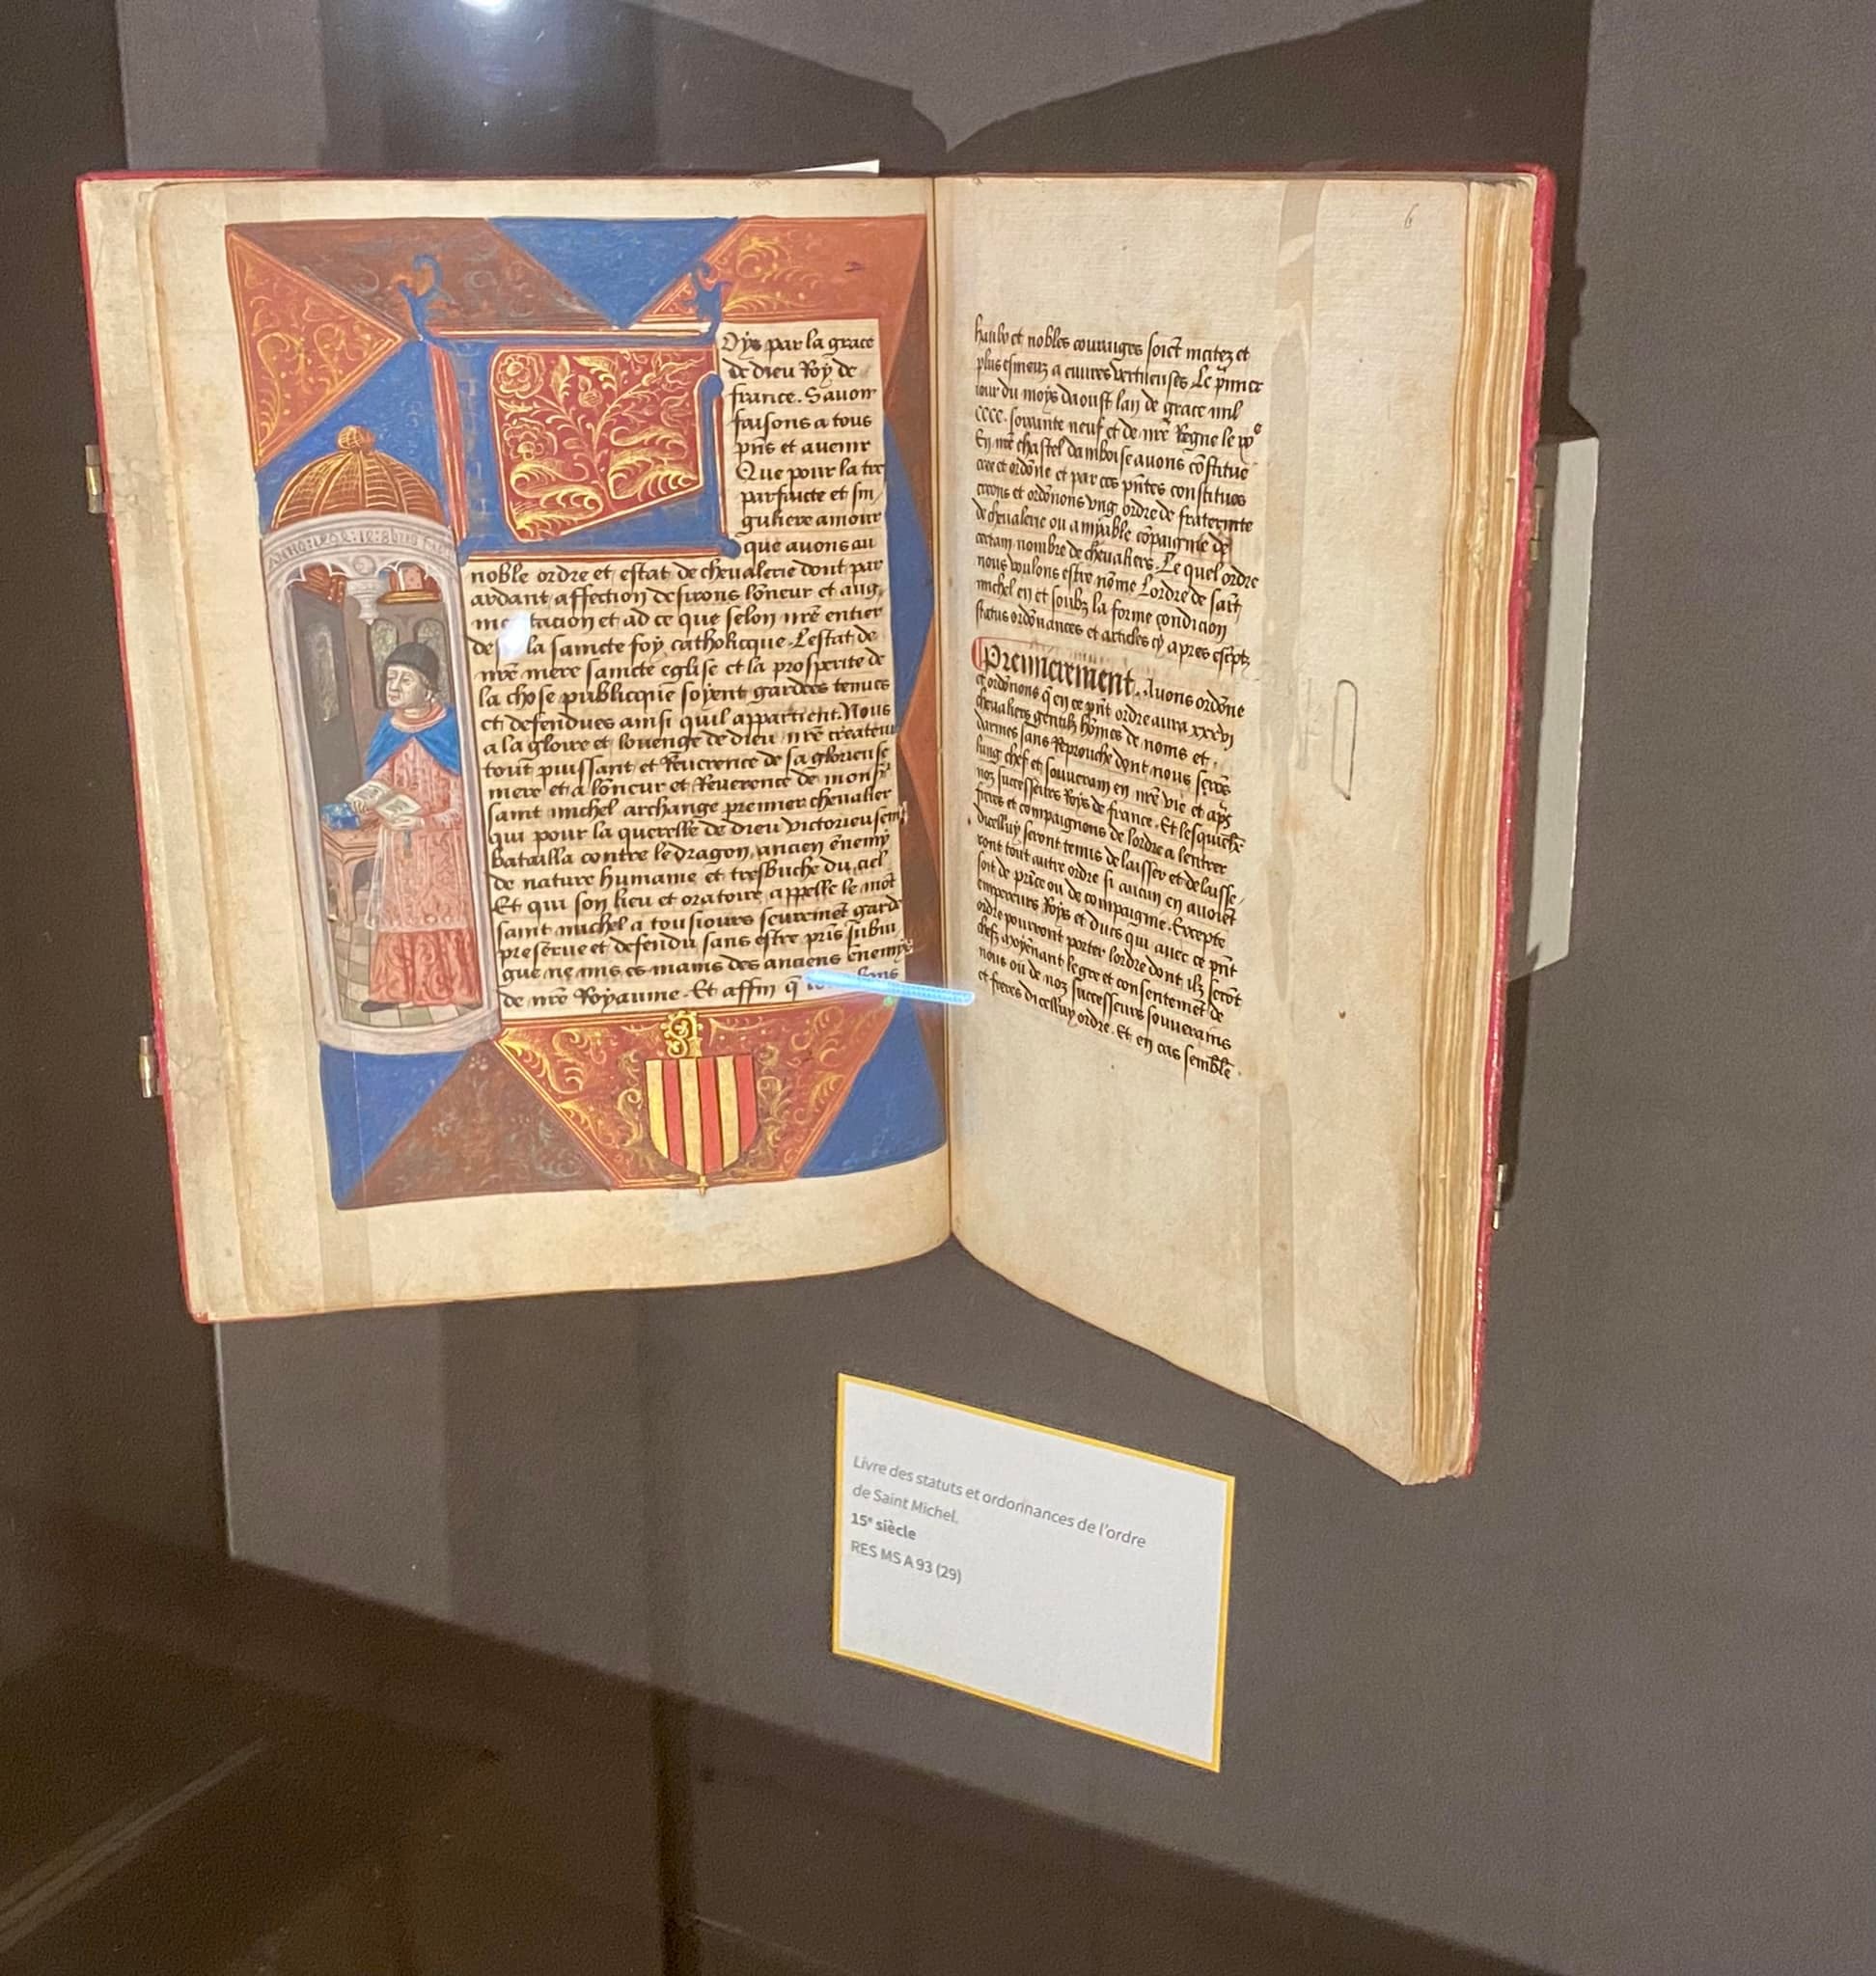 Oys par la grace
de dieu Roy de
france. Sauoir
faisons a tous
pñs et auenir
Que pour la tres
parfaicte et sin
guliere amour
que auons au
noble ordre et estat de cheualerie dont par
ardant affection desirons lõneur et aug
mentacion et ad ce que selon nrẽ entier
la saincte foy catholicque. Lestat de
nrẽ mere saincte eglise et la prosperite de
la chose publicque soyent gardees tenues
et defendues ainsi quil appartient. Nous
a la gloire et louenge de dieu nrẽ createur
tout puissant et Reuerence de sa glorieuse
mere et a lõneur et Reuerence de monsr̃
saint michel archange premier cheualier
qui pour la querelle de dieu victorieusemt̃
batailla contre le dragon ancien ẽnemy
de nature humaine et tresbucha du ciel
Et qui son lieu et oratoire appelle le mõt
saint michel a tousiours seuremẽt garde
preserue et defendu sans estre pris subiu
gue ne mis es mains des anciens ẽnemys
de nrẽ Royaume. Et affin q̃ tous
6
haulx et nobles couraiges soiẽt incitez et
plus esmeuz a euures vertueuses. Le p̃mier
iour du moys daoust lan de grace mil
cccc. soixante neuf et de nrẽ Regne le ixe
En nrẽ chastel damboise auons cõstitue
cree et ordõne et par ces pñtes constituos
creons et ordõnons vng ordre de fraternite
de cheualerie ou amyable cõpaignie de
certain nombre de cheualiers. Le quel ordre
nous voulons estre nõme Lordre de sait̃
michel en et soubz la forme condicion
status ordõnances et articles cy apres escptz
Premierement. Auons ordõne
et ordõnons q̃ en ce pñt ordre aura xxxvi
cheualiers gentilz hõmes de noms et
darmes sans Reprouche dont nous serõs
lung chef et souuerain en nrẽ vie et apṣ
noz successeurs Roys de france. Et lesquelz
freres et compaignons de lordre a lentrer
dicelluy seront tenus de laisser et delaisse
ront tout autre ordre si aucun en auoiẽt
soit de prĩce ou de compaignie. Excepte
empereurs Roys et ducs qui auec ce pñt
ordre pourront porter lordre dont ilz serõt
chefz moyẽnant le gre et consentemẽt de
nous ou de noz successeurs souuerains
et freres dicelluy ordre. Et en cas semblẽ
Livre des statuts et ordonnances de l'ordre
de Saint Michel.
15e siècle
RES MS A 93 (29)